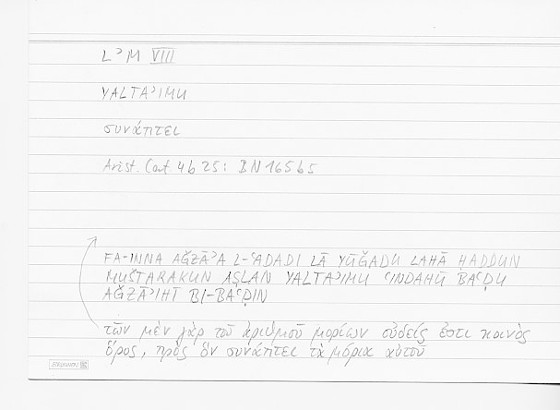 LʾM VIII
YALTAʾIMU
συνάπτει
Arist. Cat. 4b 25: BN 165b5
FA-INNA AǦZĀʾA L-ʿADADI LĀ YŪǦADU LAHĀ ḤADDUN
MUŠTARAKUN AṢLAN YALTAʾIMU ʿINDAHŪ BAʿḌU
AǦZĀʾIHĪ BI-BAʿḌIN
τῶν μὲν γὰρ τοῦ ἀριθμοῦ μορίων οὐδείς ἐστι κοινὸς
ὅρος, πρὸς ὃν συνάπτει τὰ μόρια αὐτοῦ